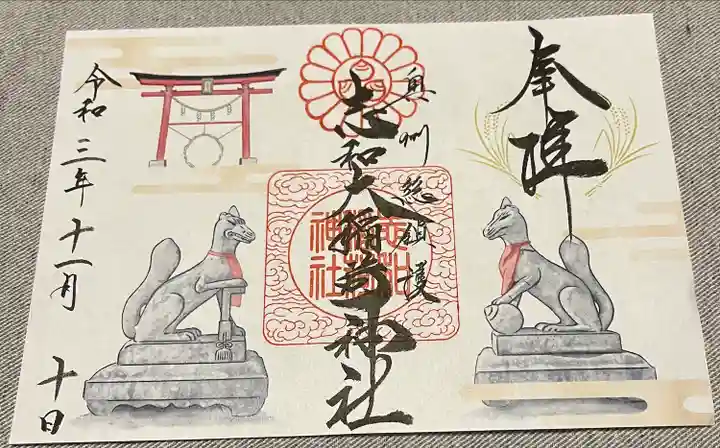 奉拝
奥州總鎮護
志和大稲荷神社
志和
稲荷
神社
令和三年十一月十日